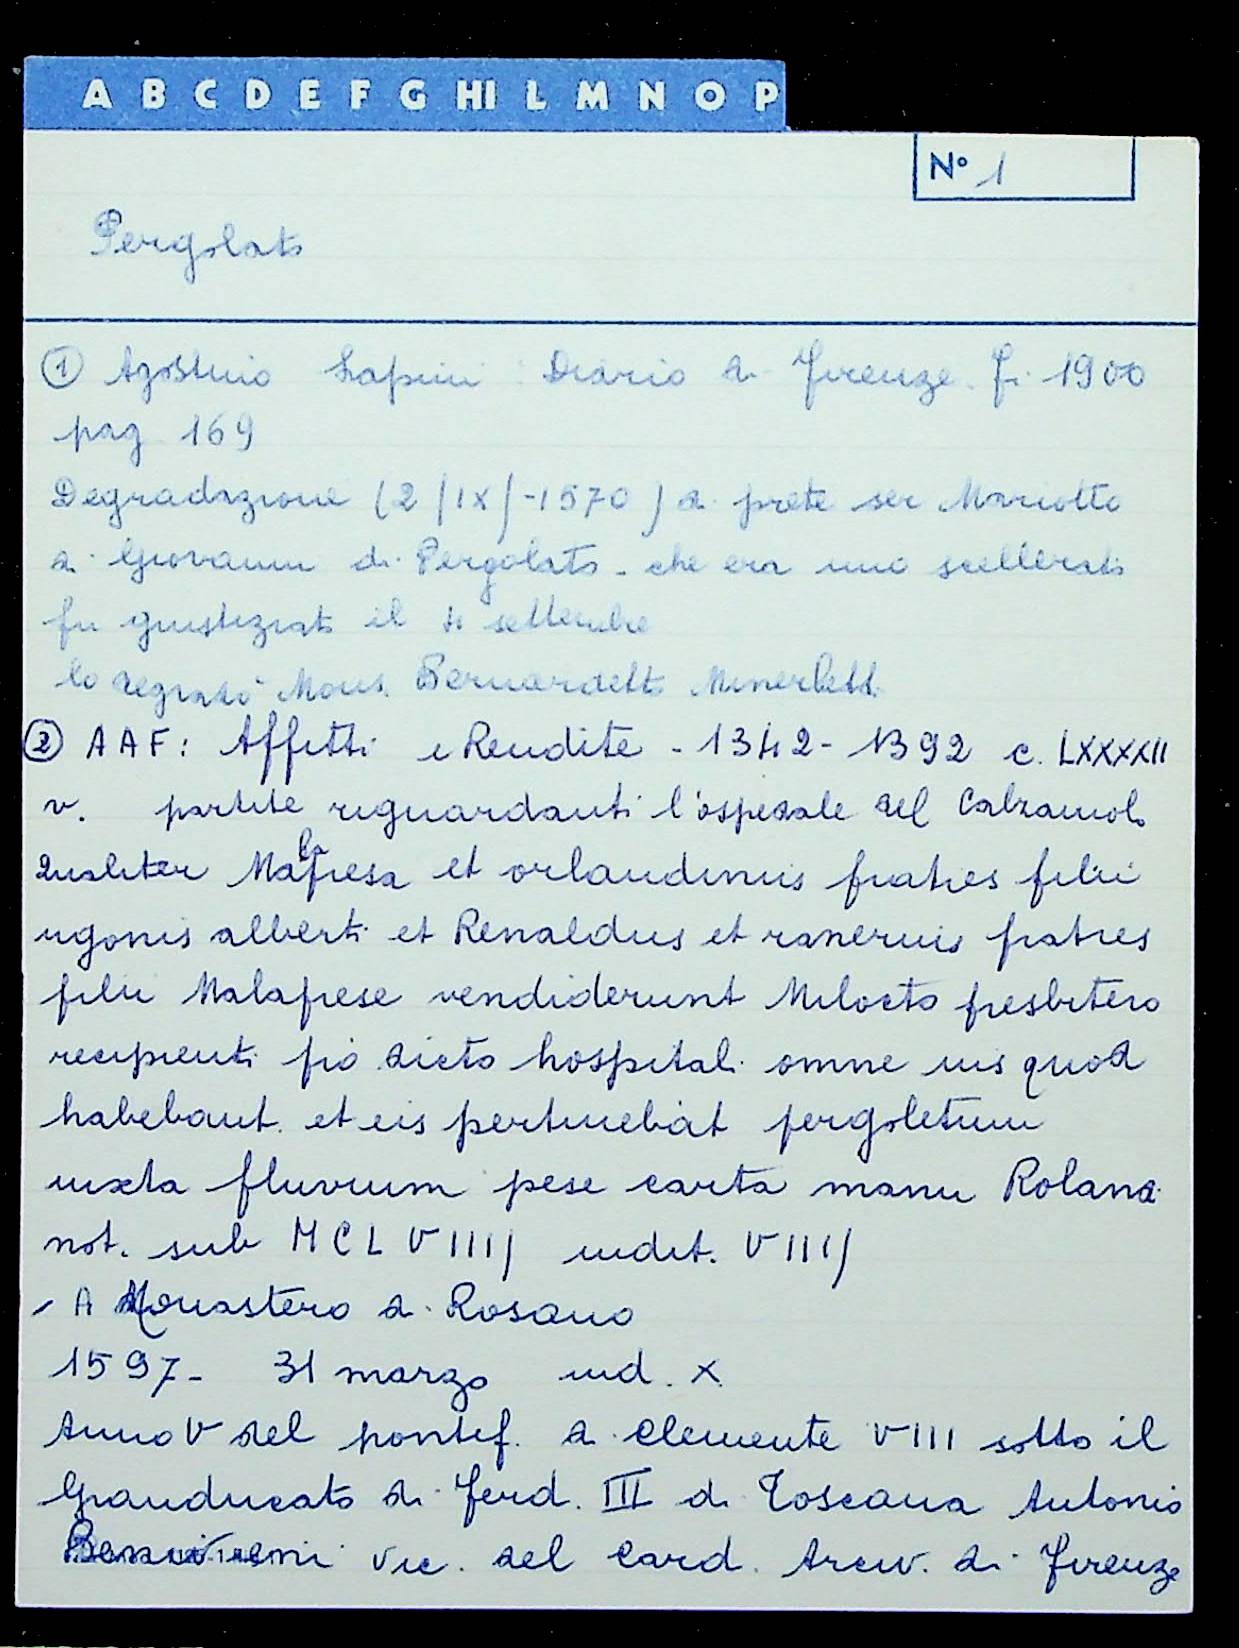 A B C D E F G HI L M N O P
N° 1
Pergolato
① Agostino Lapini Diario di Firenze. Fi. 1900
pag 169
Degradazione (2/IX/-1570) di prete ser Mariotto
di Giovanni di Pergolato - che era uno scellerato
fu giustiziato il 4 settembre
lo degradò Mons. Bernardetto Minerbetti
② AAF: Affitti e Rendite - 1342 - 1392 c. LXXXXII
v. partite riguardanti l'ospedale del Calzaiolo
Qualiter Malapresa et orlandinus fratres filii
ugonis alberti et Renaldus et ranerius fratres
filii Malaprese vendiderunt Milocto presbitero
recipienti pro dicto hospitali omne ius quod
habebant et eis pertinebat pergoletum
iuxta fluvium pese carta manu Roland
not. sub MCLVIIII/ indit. VIII/
- A Monastero di Rosano
1597 - 31 marzo ind. X
Anno V del pontif. di Clemente VIII sotto il
Granducato di Ferd. III di Toscana Antonio
Benivieni vic. del Card. Arciv. di Firenze